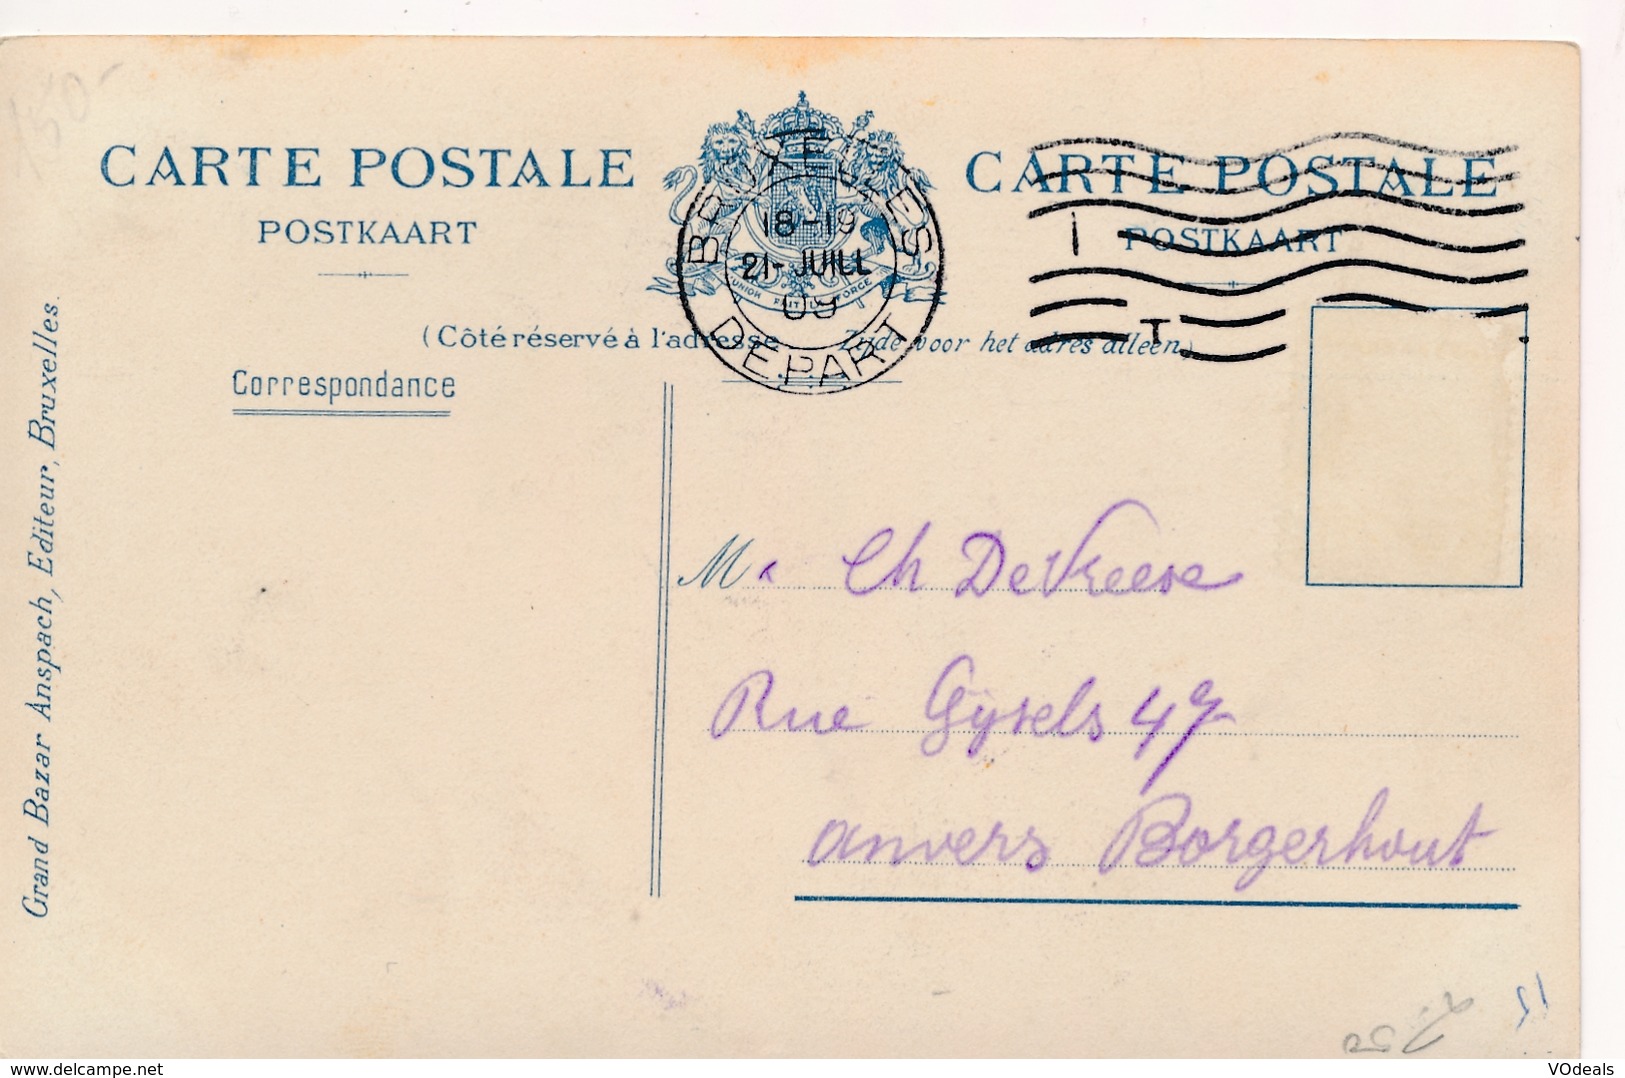 CARTE POSTALE
POSTKAART
CARTE POSTALE
POSTKAART
BRUXELLES
18-19
21-JUILL
09
DEPART
L'UNION FAIT LA FORCE
1
T
(Côté réservé à l'adresse
Zijde voor het adres alleen)
Correspondance
Grand Bazar Anspach, Editeur, Bruxelles.
M. Ch DeVreese
Rue Gysels 49
Anvers Borgerhout
15
www.delcampe.net
VOdeals